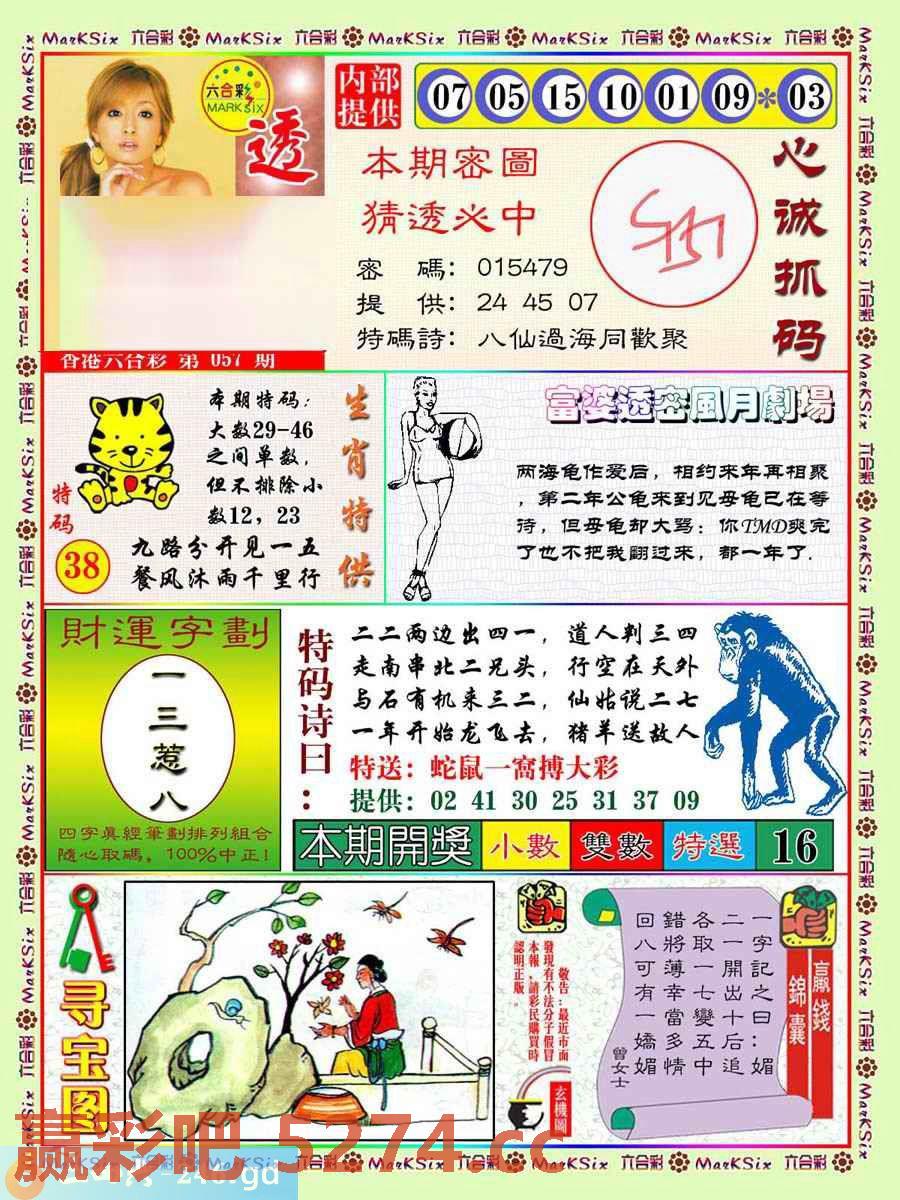 MarKSix 六合彩 MarKSix 六合彩 MarKSix 六合彩 MarKSix 六合彩 MarKSix 六合彩
六合彩
MARK six
透
内部
提供
07 05 15 10 01 09 * 03
本期密圖
猜透必中
密 碼: 015479
提 供: 24 45 07
特碼詩: 八仙過海同歡聚
心诚抓码
香港六合彩 第 057 期
本期特码:
大数29-46
之间单数,
但不排除小
数12, 23
特码
38
九路分开见一五
餐风沐雨千里行
生肖特供
富婆透密風月劇場
两海龟作爱后, 相约来年再相聚
, 第二年公龟来到见母龟已在等
待, 但母龟却大骂: 你TMD爽完
了也不把我翻过来, 都一年了.
財運字劃
一
三
惹
八
四字眞經筆劃排列組合
隨心取碼, 100%中正!
特码诗曰:
二二两边出四一, 道人判三四
走南串北二兄头, 行空在天外
与石有机来三二, 仙姑说二七
一年开始龙飞去, 猪羊送故人
特送: 蛇鼠一窩搏大彩
提供: 02 41 30 25 31 37 09
本期開獎 小數 雙數 特選 16
寻宝图
敬告:最近市面
發現有不法分子假冒
本報,請彩民購買時
認明正版。
玄機圖
一字記之曰:媚
二一開出十后追
各取一七變五中
錯將薄幸當多情
回八可有一嬌媚
曾女士
贏錢
錦囊
赢彩吧 5274.cc
MarKSix 六合彩 MarKSix 六合彩 MarKSix 六合彩